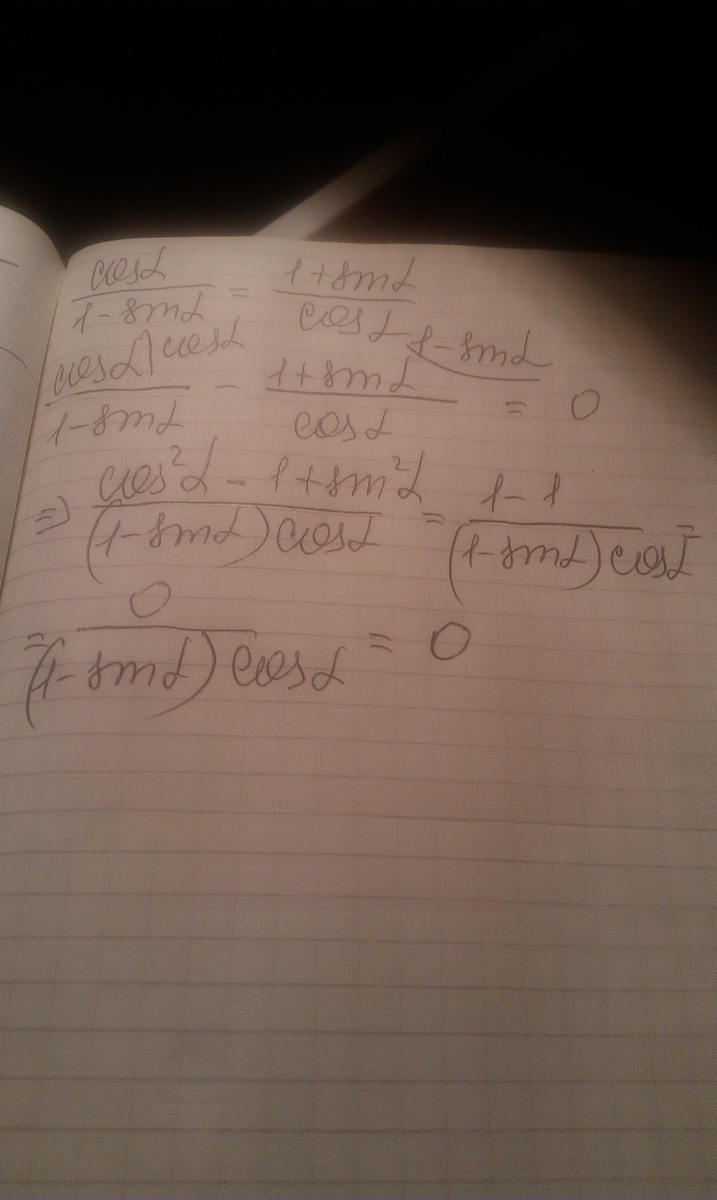 cosα / 1 - sinα = 1 + sinα / cosα
cosα \ cosα / 1 - sinα - 1 + sinα \ 1 - sinα / cosα = 0
=> cos²α - 1 + sin²α / (1 - sinα) cosα = 1 - 1 / (1 - sinα) cosα =
= 0 / (1 - sinα) cosα = 0